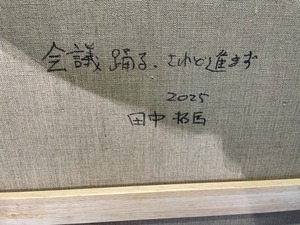 会議踊る、されど進まず
2025
田中拓馬